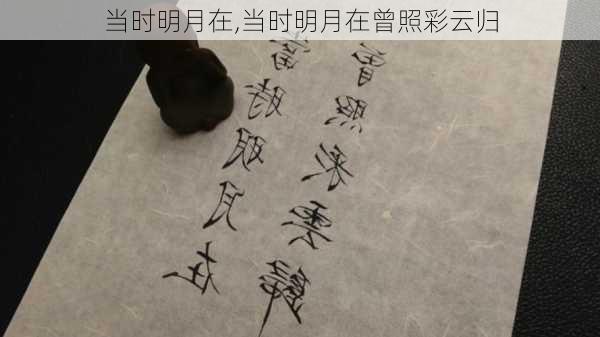 当时明月在,当时明月在曾照彩云归
當時明月在
曾照彩雲歸